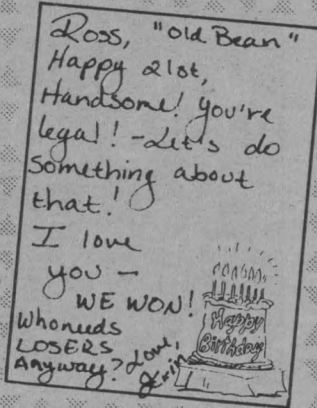 Ross, "Old Bean"
Happy 21st,
Handsome! You're
legal! -Let's do
something about
that!
I love
you -
WE WON!
Who needs
LOSERS
Anyway? Love,
Happy
Birthday